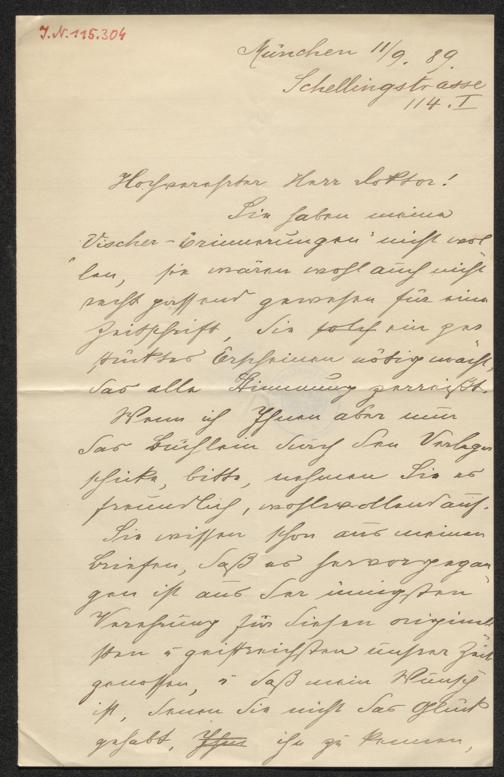 J.N. 115.304
München 11/9. 89.
Schellingstrasse
114. I
Hochverehrter Herr Doktor!
Sie haben meine
"Vischer-Erinnerungen" nicht wol
len, sie wären wohl auch nicht
recht passend gewesen für eine
Zeitschrift, die solch ein ge
stücktes Erscheinen nötig macht,
das alle Stimmung zerreißt.
Wenn ich Ihnen aber nun
das Büchlein durch den Verleger
schicke, bitte, nehmen Sie es
freundlich, wohlwollend auf.
Sie wissen schon aus meinen
Briefen, daß es hervorgegan
gen ist aus der innigsten
Verehrung für diesen originell
sten u geistreichsten unsrer Zeit
genossen, u daß mein Wunsch
ist, denen die nicht das Glück
gehabt, ihn zu kennen,